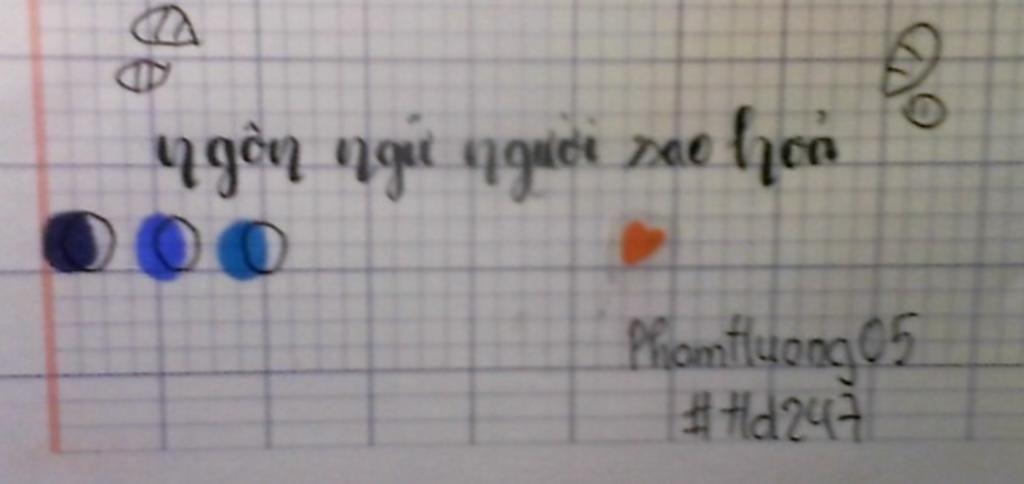 ngôn ngữ người sao hoả
PhamHuong05
#Hd247